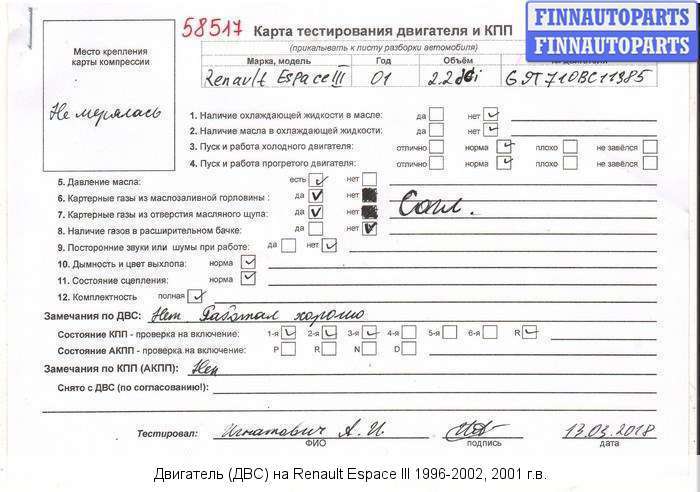 58517 Карта тестирования двигателя и КПП
FINNAUTOPARTS
FINNAUTOPARTS
(прикалывать к листу разборки автомобиля)
Место крепления
карты компрессии
Не мерялась
Марка, модель Год Объём
Renault Espace III 01 2.2 dci G9T710BC11985
1. Наличие охлаждающей жидкости в масле: да нет
2. Наличие масла в охлаждающей жидкости: да нет
3. Пуск и работа холодного двигателя: отлично норма плохо не завёлся
4. Пуск и работа прогретого двигателя: отлично норма плохо не завёлся
5. Давление масла: есть нет
6. Картерные газы из маслозаливной горловины : да нет
7. Картерные газы из отверстия масляного щупа: да нет Согл.
8. Наличие газов в расширительном бачке: да нет
9. Посторонние звуки или шумы при работе: да нет
10. Дымность и цвет выхлопа: норма
11. Состояние сцепления: норма
12. Комплектность полная
Замечания по ДВС: Нет Работал хорошо
Состояние КПП - проверка на включение: 1-я 2-я 3-я 4-я 5-я 6-я R
Состояние АКПП - проверка на включение: P R N D
Замечания по КПП (АКПП): Нет
Снято с ДВС (по согласованию!):
Тестировал: Игнатович А. И. 13.03.2018
ФИО подпись дата
Двигатель (ДВС) на Renault Espace III 1996-2002, 2001 г.в.